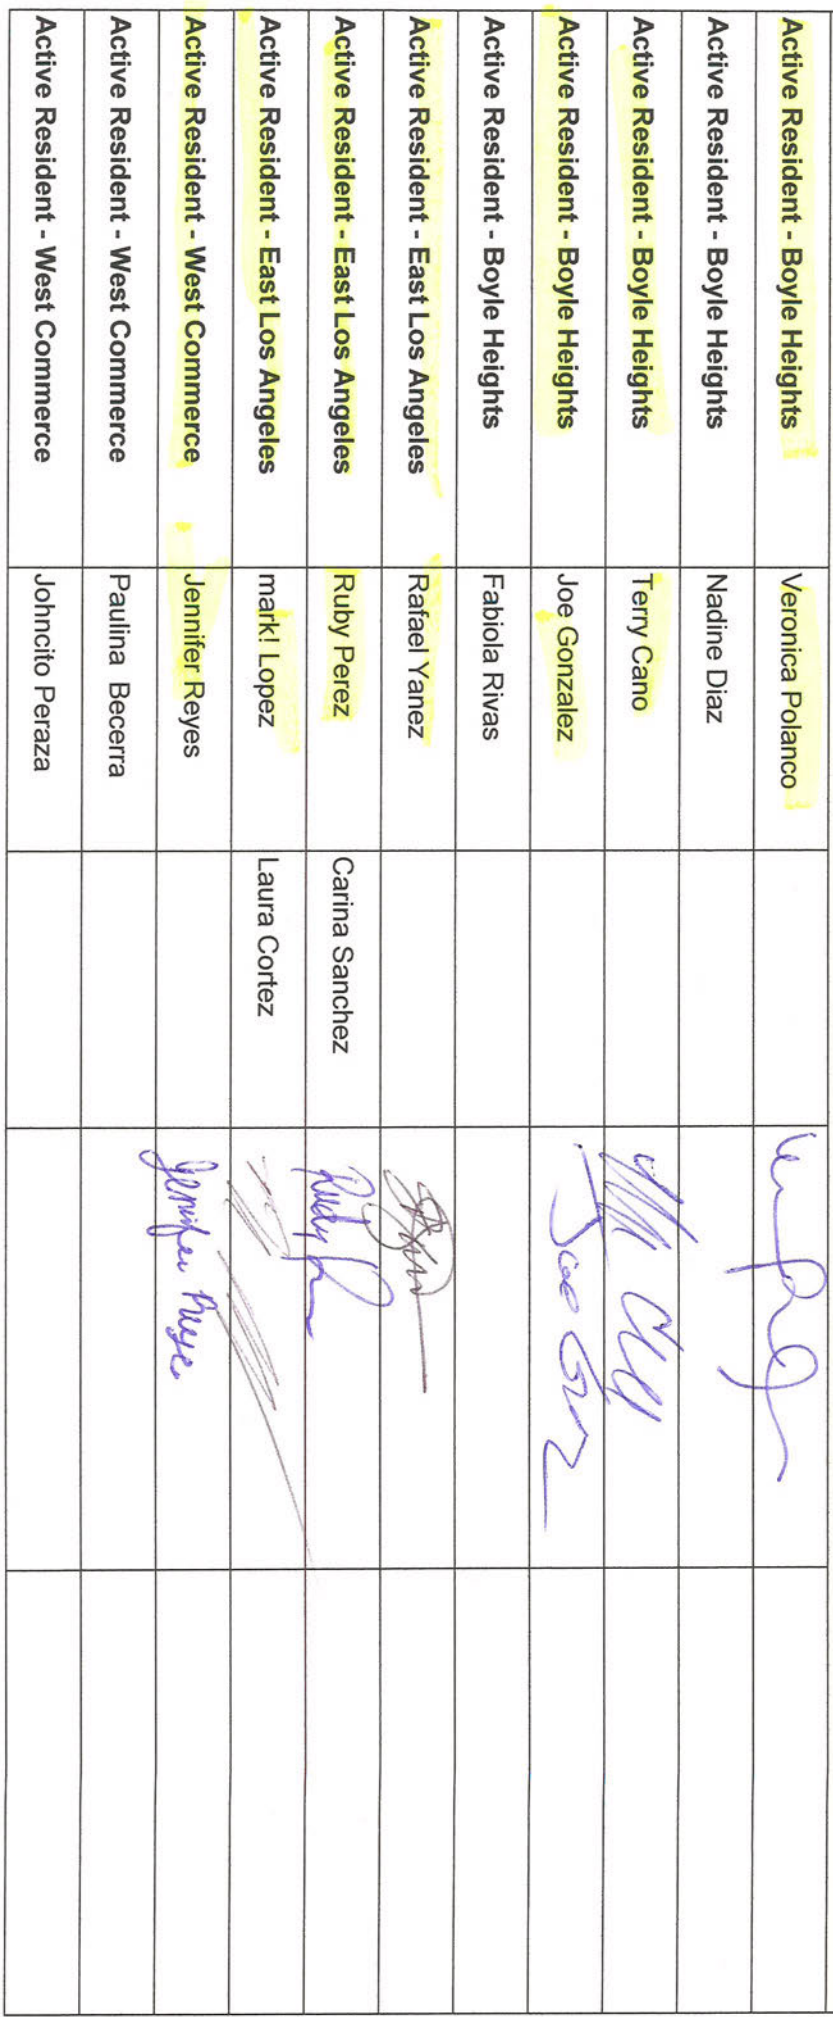 Active Resident - Boyle Heights Veronica Polanco
Active Resident - Boyle Heights Nadine Diaz
Active Resident - Boyle Heights Terry Cano
Active Resident - Boyle Heights Joe Gonzalez Joe
Active Resident - Boyle Heights Fabiola Rivas
Active Resident - East Los Angeles Rafael Yanez
Active Resident - East Los Angeles Ruby Perez Carina Sanchez
Active Resident - East Los Angeles mark! Lopez Laura Cortez
Active Resident - West Commerce Jennifer Reyes Jennifer Reyes
Active Resident - West Commerce Paulina Becerra
Active Resident - West Commerce Johncito Peraza